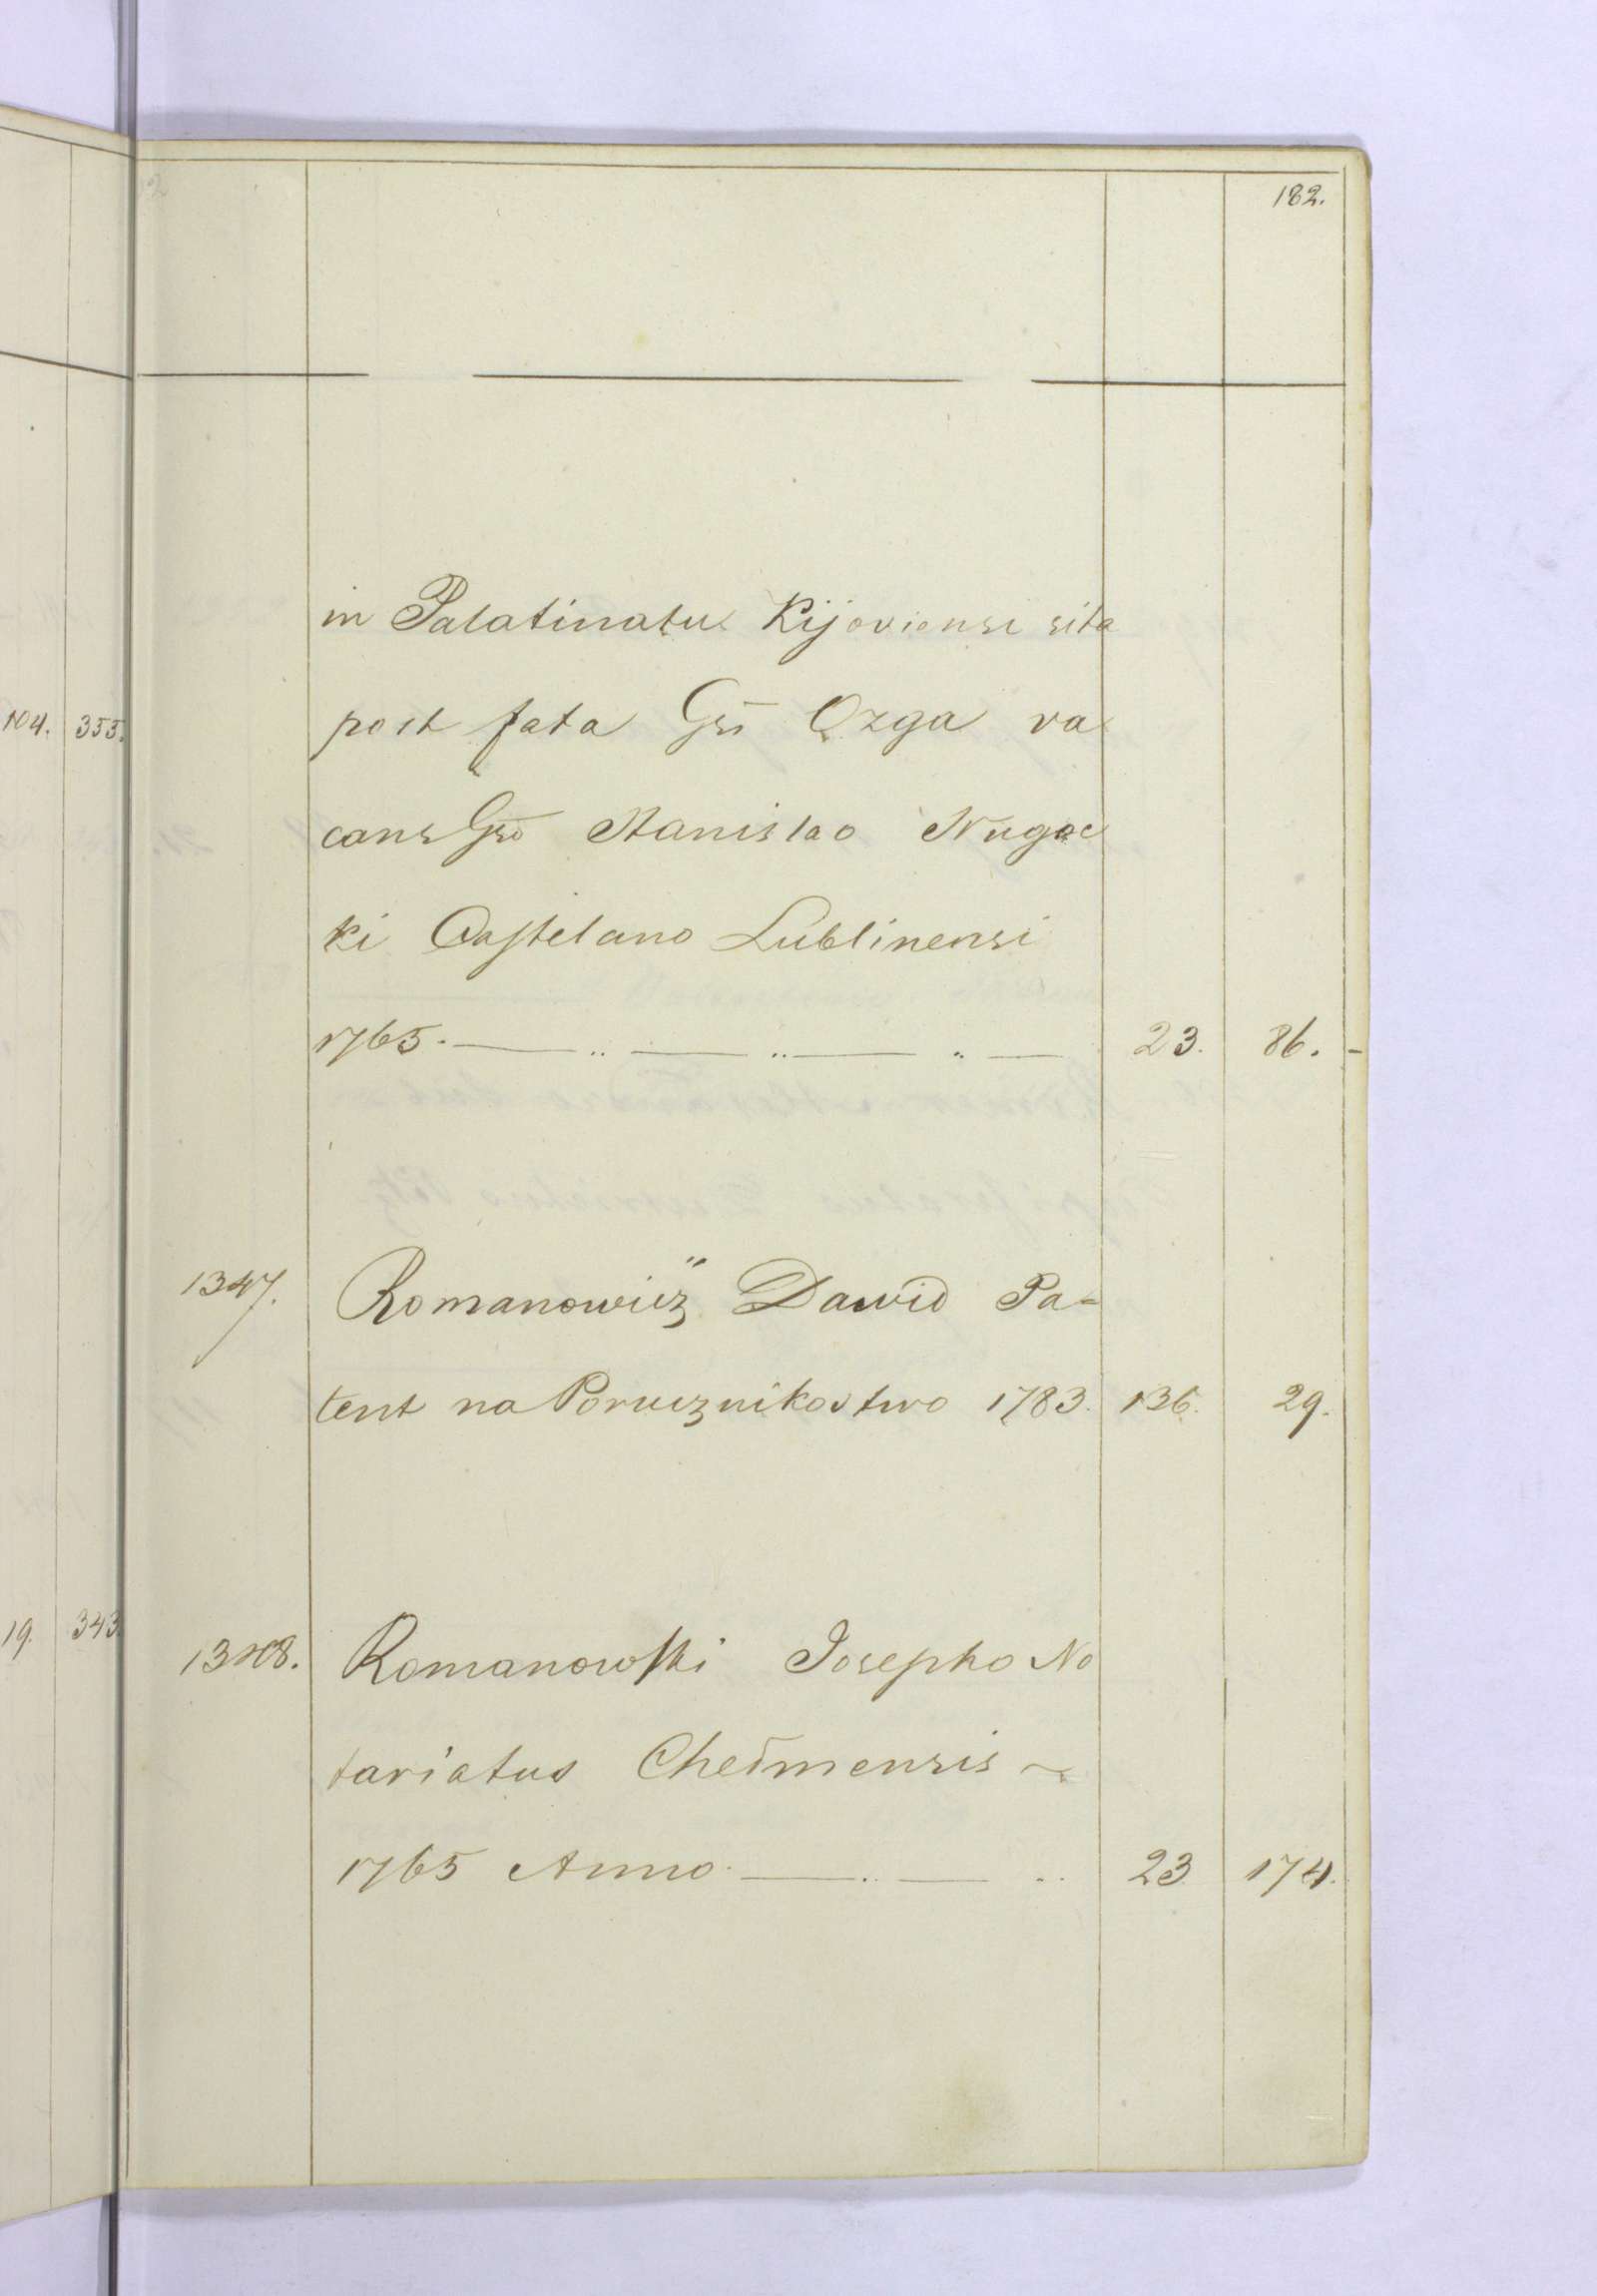 182.
in Palatinatu Kijoviensi sita
post fata Gsi Ozga va
cans Gso Stanislao Nugoc
ki Castelano Lublinensi
1765. — .. — .. — .. — 23. 86. -
1347. Romanowicz Dawid Pa-
tent na Porucznikostwo 1783. 136. 29.
1348. Romanowski Josepho No
tariatus Chelmensis ~
1765 Anno. — .. — .. 23 174.
104. 355.
19. 343.